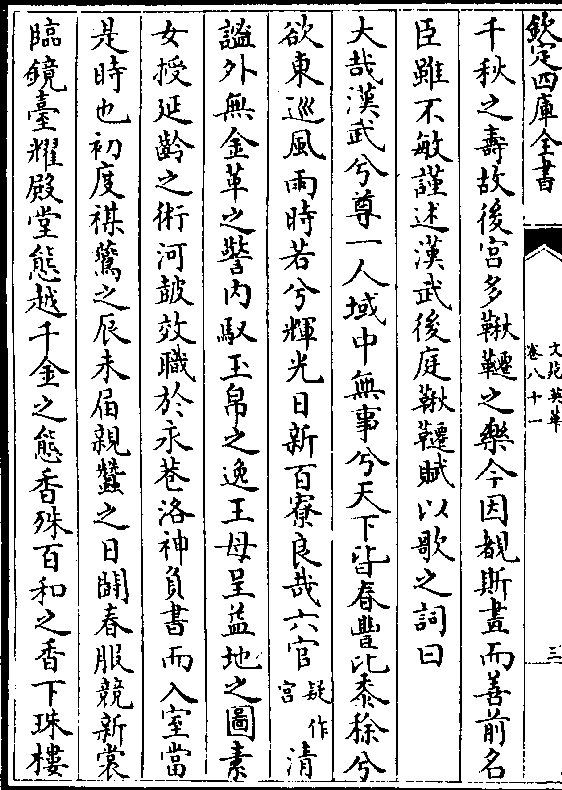 欽定四庫全書
文苑英華
卷八十一
三
千秋之壽故後宮多鞦韆之樂今因覩斯畫而善前名
臣雖不敏謹述漢武後庭鞦韆賦以歌之詞曰
大哉漢武兮尊一人域中無事兮天下皆春豐比黍稌兮
欲東巡風雨時若兮輝光日新百寮良哉六官疑作宮清
謐外無金革之警内馭玉帛之逸王母呈益地之圖素
女授延齡之術河鼓效職於永巷洛神負書而入室當
是時也初度禖鶯之辰未届親蠶之日鬬春服競新裳
臨鏡臺耀殿堂態越千金之態香殊百和之香下珠樓